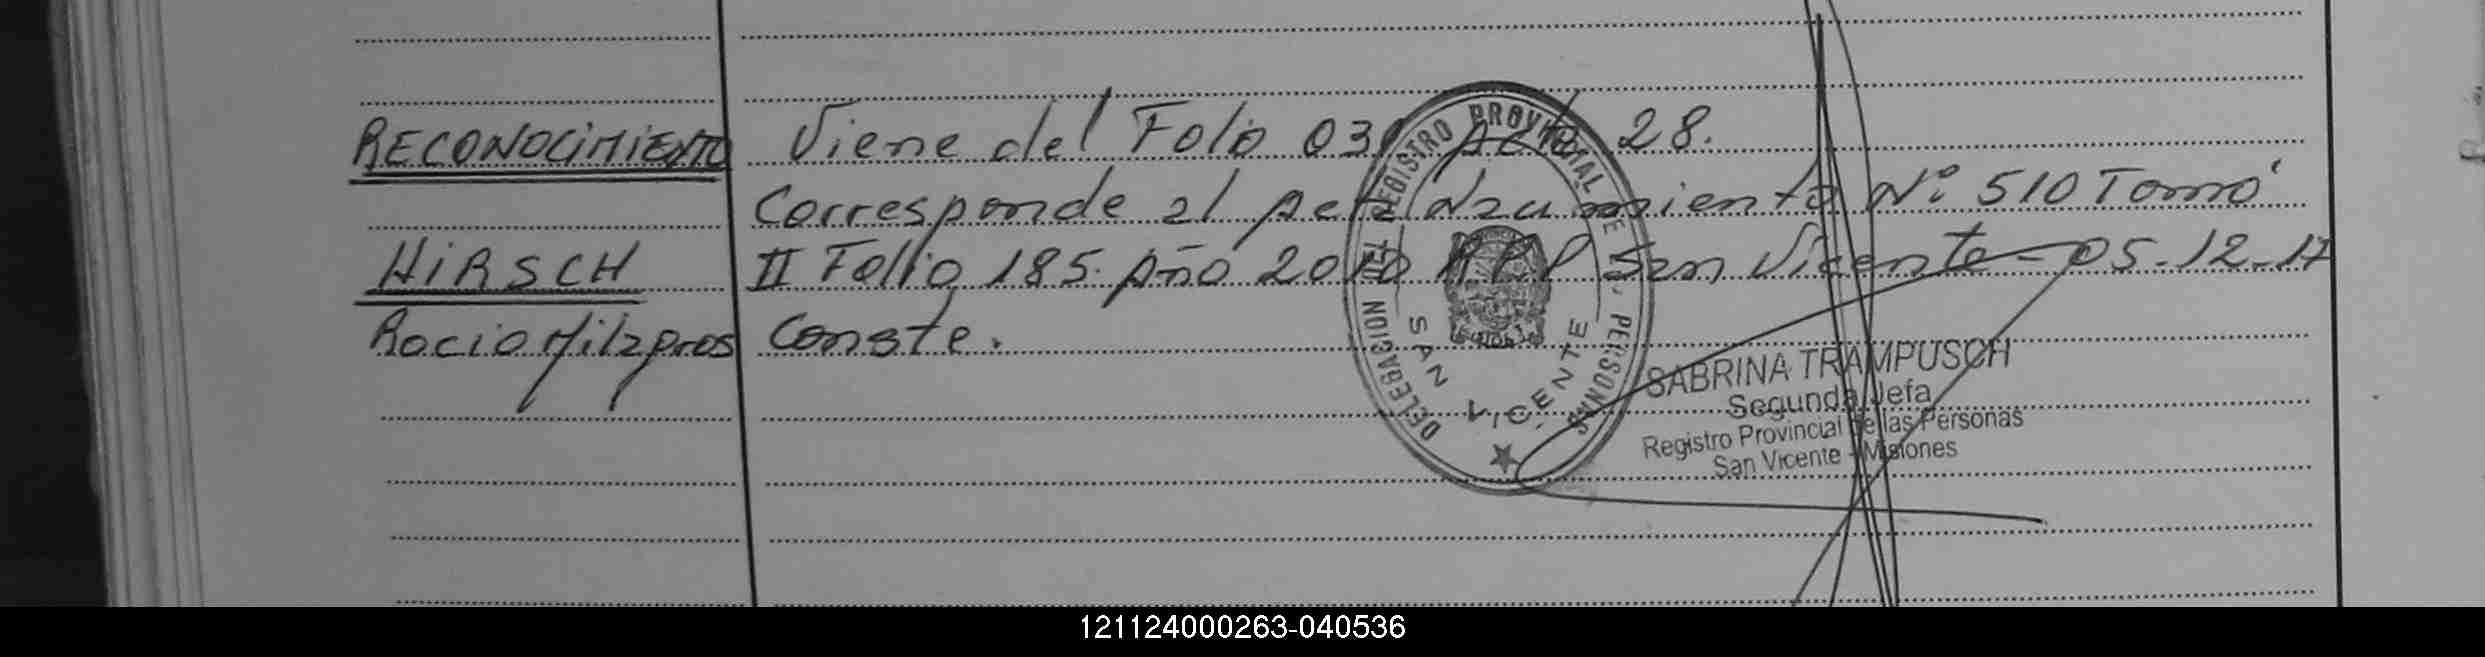 RECONOCIMIENTO Viene del Folio 03 Acta 28.
Corresponde al Acta Nacimiento Nº 510 Tomo
HIRSCH II Folio 185. Año 2010 RPP San Vicente - 05-12-17
Rocio Milagros Conste.
DELEGACION DEL REGISTRO PROVINCIAL DE PERSONAS
SAN VICENTE
SABRINA TRAMPUSCH
Segunda Jefa
Registro Provincial de las Personas
San Vicente - Misiones
121124000263-040536